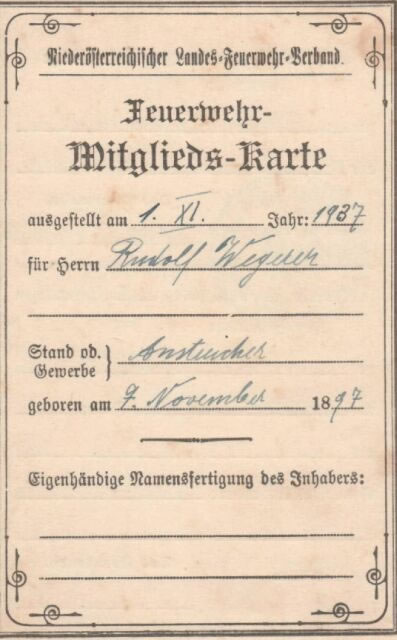 Niederösterreichischer Landes-Feuerwehr-Verband.
Feuerwehr-
Mitglieds-Karte
ausgestellt am 1. XI. Jahr: 1937
für Herrn Rudolf Wegerer
Stand od. Gewerbe } Anstreicher
geboren am 7. November 1897
Eigenhändige Namensfertigung des Inhabers: